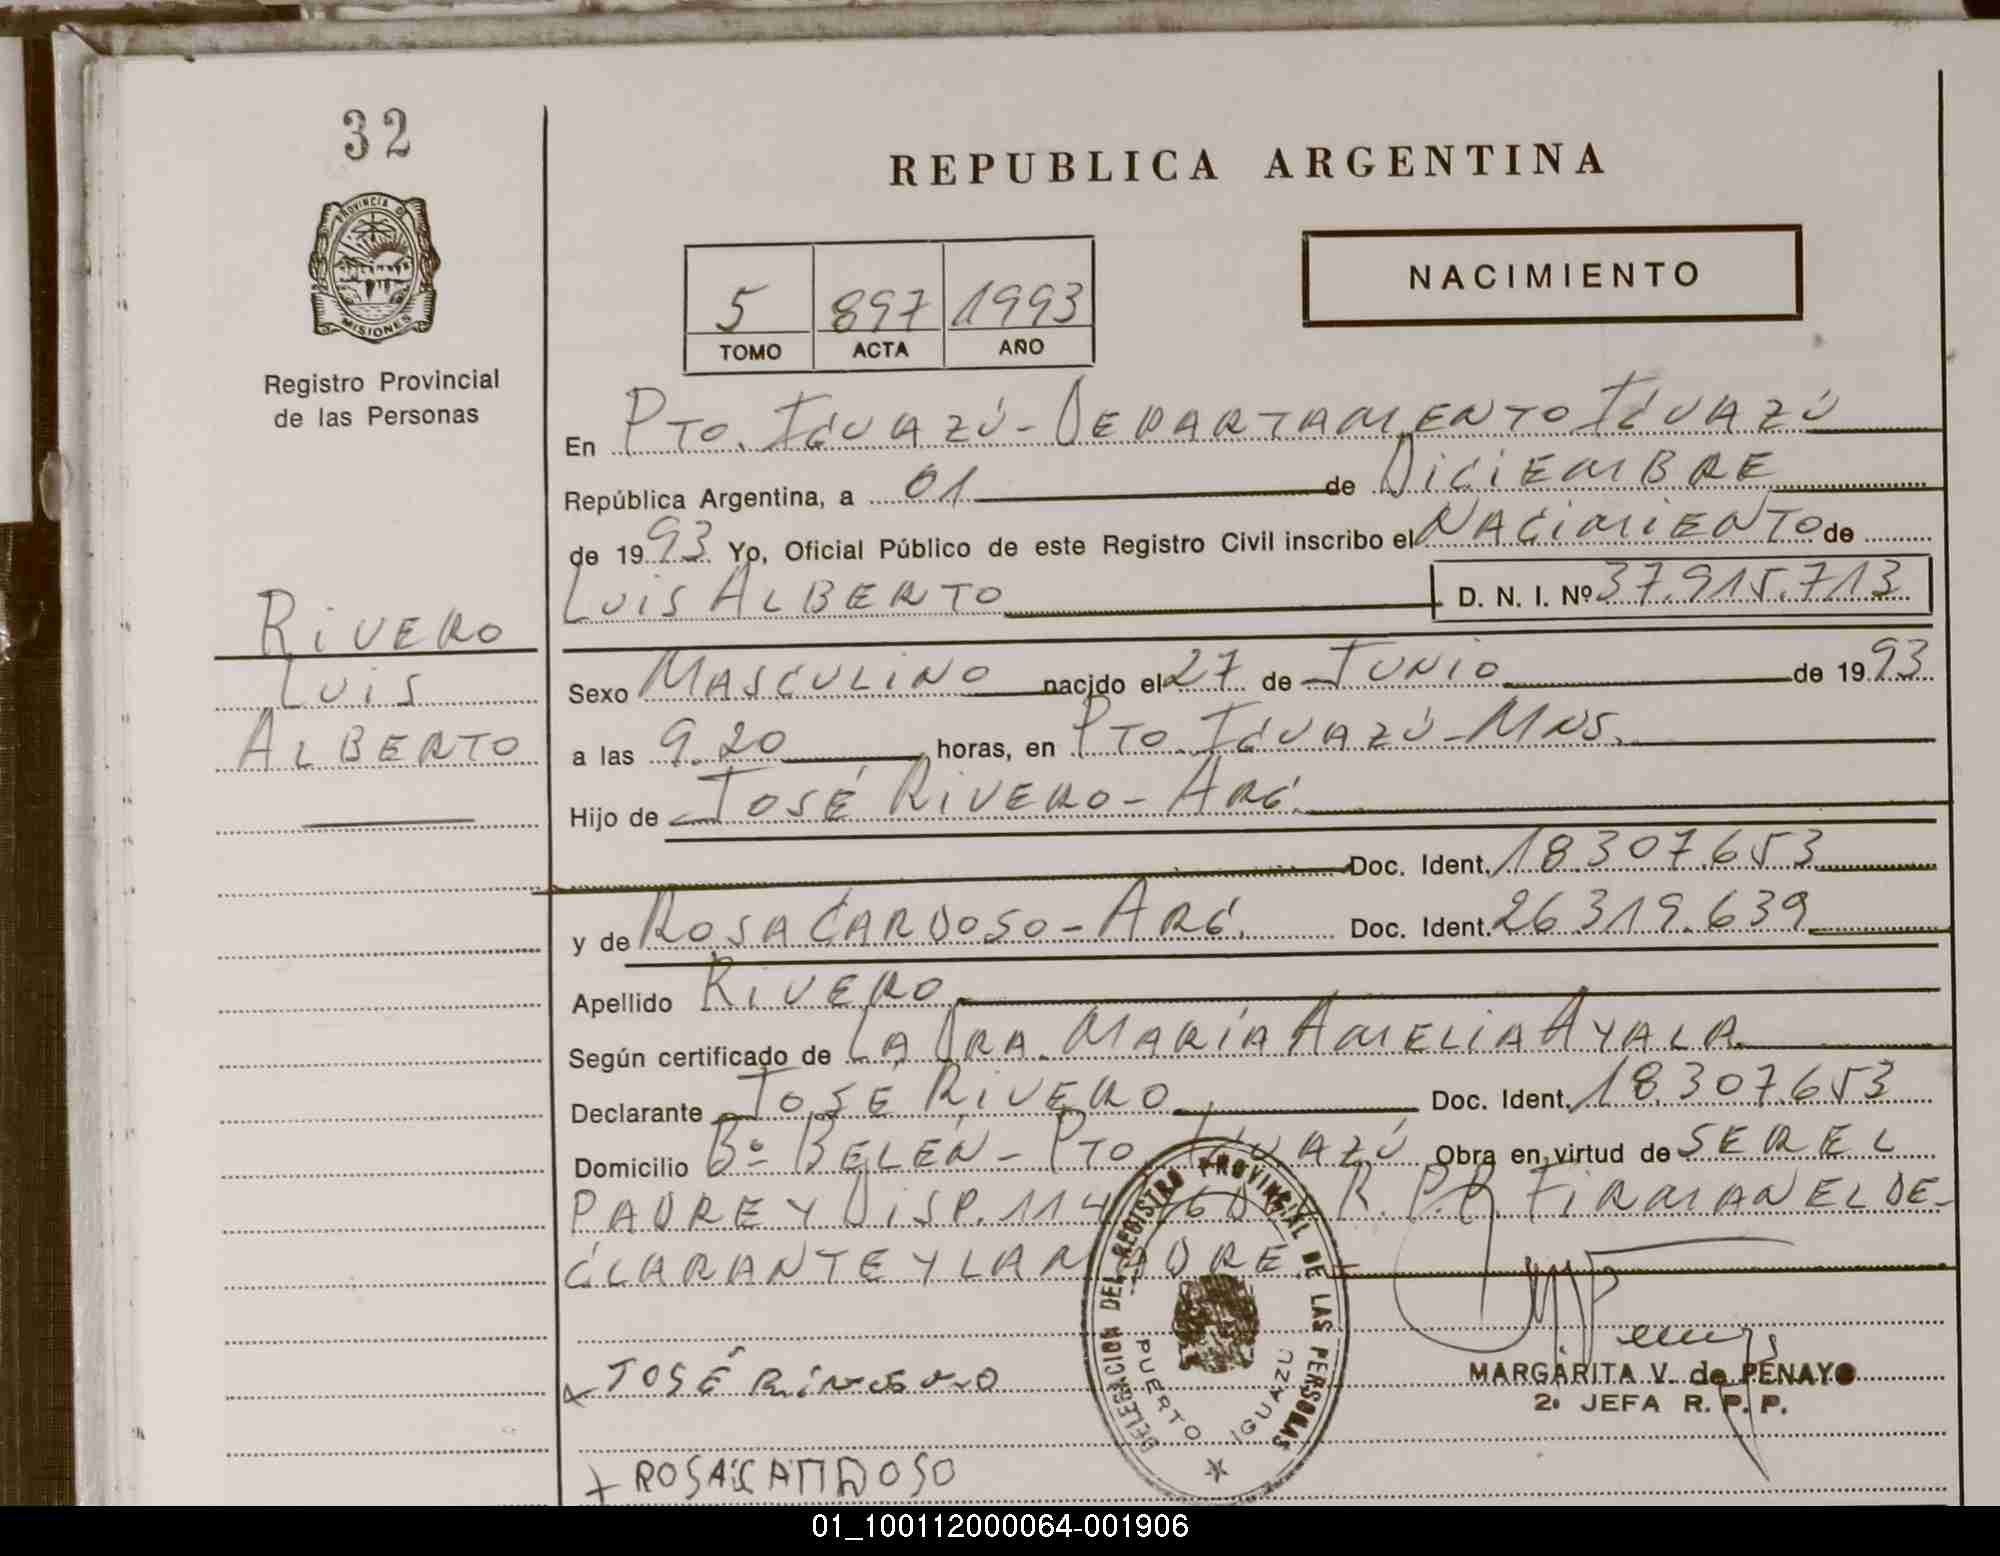 32
REPUBLICA ARGENTINA
PROVINCIA DE
MISIONES
Registro Provincial
de las Personas
NACIMIENTO
5 897 1993
TOMO ACTA AÑO
En PTO. IGUAZÚ - DEPARTAMENTO IGUAZÚ
República Argentina, a 01 de DICIEMBRE
de 1993 Yo, Oficial Público de este Registro Civil inscribo el NACIMIENTO de
LUIS ALBERTO D. N. I. Nº 37.915.713
RIVERO
LUIS
ALBERTO
Sexo MASCULINO nacido el 27 de JUNIO de 1993
a las 9.20 horas, en PTO. IGUAZÚ - MNS.
Hijo de JOSÉ RIVERO - ARG.
Doc. Ident. 18.307.653
y de ROSA CARDOSO - ARG. Doc. Ident. 26.319.639
Apellido RIVERO
Según certificado de LA DRA. MARÍA AMELIA AYALA
Declarante JOSÉ RIVERO Doc. Ident. 18.307.653
Domicilio Bº BELÉN - PTO IGUAZÚ Obra en virtud de SER EL
PADRE Y DISP. 114 R. P. P. FIRMAN EL DE-
CLARANTE Y LA MADRE
DELEGACION DEL REGISTRO PROVINCIAL DE LAS PERSONAS
PUERTO IGUAZU
MARGARITA V. de PENAYO
2ª JEFA R. P. P.
JOSÉ
ROSA CARDOSO
01_100112000064-001906